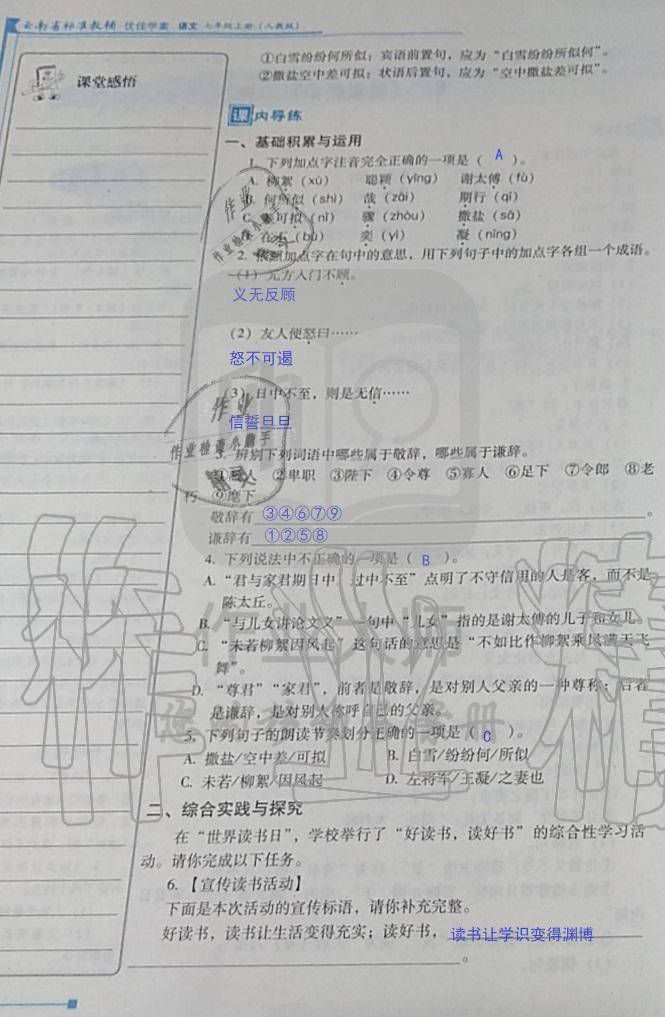 云南省标准教辅 优佳学案 语文 七年级上册（人教版）
课堂感悟
①白雪纷纷何所似：宾语前置句，应为“白雪纷纷所似何”。
②撒盐空中差可拟：状语后置句，应为“空中撒盐差可拟”。
课内导练
一、基础积累与运用
1. 下列加点字注音完全正确的一项是（ A ）。
A. 柳絮（xù） 聪颖（yǐng） 谢太傅（fù）
B. 何所似（shì） 哉（zāi） 期行（qī）
可拟（nǐ） 骤（zhòu） 撒盐（sā）
奕（yì） 凝（níng）
2. 根据加点字在句中的意思，用下列句子中的加点字各组一个成语。
（1）元方入门不顾。
义无反顾
（2）友人便怒曰……
怒不可遏
（3）日中不至，则是无信……
信誓旦旦
3. 辨别下列词语中哪些属于敬辞，哪些属于谦辞。
②卑职 ③陛下 ④令尊 ⑤寡人 ⑥足下 ⑦令郎 ⑧老
朽 ⑨麾下
敬辞有 ③④⑥⑦⑨。
谦辞有 ①②⑤⑧
4. 下列说法中不正确的一项是（ B ）。
A. “君与家君期日中，过中不至”点明了不守信用的人是客，而不是
陈太丘。
B. “与儿女讲论文义”一句中“儿女”指的是谢太傅的儿子和女儿。
C. “未若柳絮因风起”这句话的意思是“不如比作柳絮乘风满天飞
舞”。
D. “尊君”“家君”，前者是敬辞，是对别人父亲的一种尊称；后者
是谦辞，是对别人称呼自己的父亲。
5. 下列句子的朗读节奏划分正确的一项是（ C ）。
A. 撒盐/空中差/可拟 B. 白雪/纷纷何/所似
C. 未若/柳絮/因风起 D. 左将军/王凝/之妻也
二、综合实践与探究
在“世界读书日”，学校举行了“好读书，读好书”的综合性学习活
动。请你完成以下任务。
6. 【宣传读书活动】
下面是本次活动的宣传标语，请你补充完整。
好读书，读书让生活变得充实；读好书，读书让学识变得渊博
。
作业检查小帮手
作业检查小帮手
作业大师